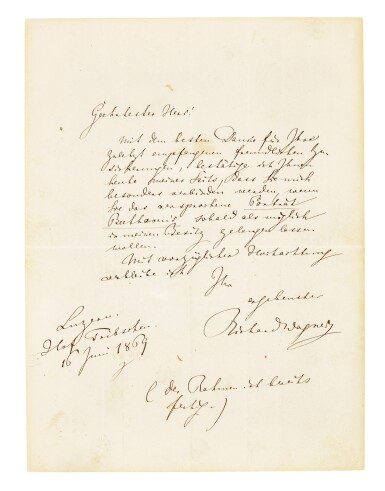 Geehrtester Herr!
Mit dem besten Danke für Ihre
zuletzt empfangenen freundlichen Zu-
sicherungen, bestätige ich Ihnen
heute meiner Seits, dass Sie mich
besonders verbinden werden, wenn
Sie das versprochene Porträt
Beethoven's sobald als möglich
in meinen Besitz gelangen lassen
wollen.
Mit vorzüglicher Hochachtung
verbleibe ich
Ihr
ergebenster
Richard Wagner
Luzern.
Hof Tribschen.
16 Juni 1869
(der Rahmen ist bereits
fertig.)